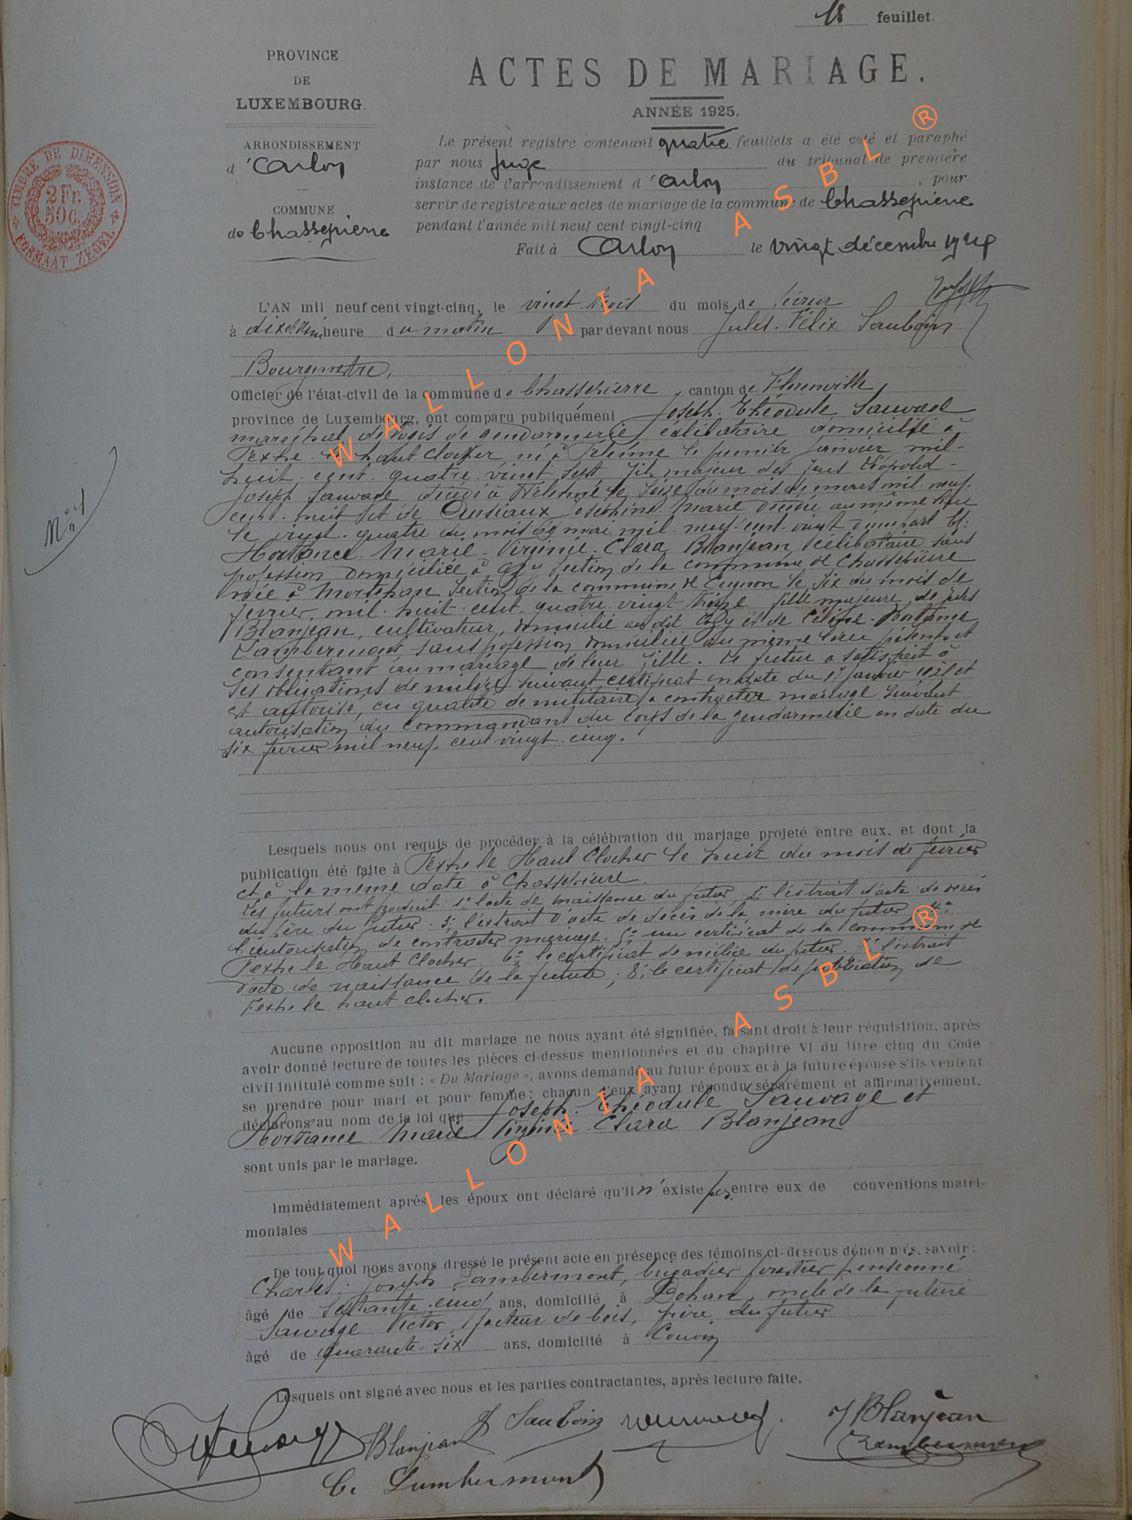 18 feuillet.
PROVINCE
DE
LUXEMBOURG.
ARRONDISSEMENT
d'Arlon
COMMUNE
de Chassepierre
TIMBRE DE DIMENSION
2 Fr.
50 C.
FORMAAT ZEGEL
ACTES DE MARIAGE.
ANNÉE 1925.
Le présent registre contenant quatre feuillets a été coté et paraphé
par nous Juge du tribunal de première
instance de l'arrondissement d'Arlon, pour
servir de registre aux actes de mariage de la commune de Chassepierre
pendant l'année mil neuf cent vingt-cinq
Fait à Arlon le vingt décembre 1924
L'AN mil neuf cent vingt-cinq, le vingt trois du mois de février
à dix heure du matin par devant nous Jules Félix Sauboin
Bourgmestre,
Officier de l'état-civil de la commune de Chassepierre, canton de Florenville,
province de Luxembourg, ont comparu publiquement Joseph Théodule Sauvage
maréchal des logis de gendarmerie célibataire domicilié à
Texhe le haut Clocher né à le premier janvier mil
huit cent quatre vingt sept fils majeur des feus Léopold
Joseph Sauvage décédé à le seize du mois de mars mil neuf
cent huit et de Ansiaux Joséphine Marie décédée au même lieu
le vingt quatre du mois de mai mil neuf cent vingt d'une part Et
Hortance Marie Virginie Clara Blanjean, célibataire sans
profession domiciliée à section de la commune de Chassepierre
née à Mortehan section de la commune de Cugnon le six du mois de
février mil huit cent quatre vingt treize fille majeure de
Blanjean, cultivateur, domicilié au dit et de Céline Hortance
Lambermont sans profession domiciliée au même lieu présents et
consentant au mariage de leur fille. Le futur a satisfait à
ses obligations de milice suivant certificat en date du janvier et
est autorisé, en qualité de militaire à contracter mariage suivant
autorisation du commandant du corps de la gendarmerie en date du
six février mil neuf cent vingt cinq.
N° 1
Lesquels nous ont requis de procéder à la célébration du mariage projeté entre eux, et dont la
publication été faite à Texhe le Haut Clocher le huit du mois de février
et à la même date à Chassepierre
Les futurs ont produit 1° l'acte de naissance du futur, 2° l'extrait d'acte de décès
du père du futur 3° l'extrait d'acte de décès de la mère du futur, 4°
l'autorisation de contracter mariage, 5° un certificat de la commune de
Texhe le Haut Clocher 6° le certificat de milice du futur 7° l'extrait
d'acte de naissance de la future; 8° le certificat de publication de
Texhe le haut clocher.
Aucune opposition au dit mariage ne nous ayant été signifiée, faisant droit à leur réquisition, après
avoir donné lecture de toutes les pièces ci-dessus mentionnées et du chapitre VI du titre cinq du Code
civil intitulé comme suit : « Du Mariage », avons demandé au futur époux et à la future épouse s'ils veulent
se prendre pour mari et pour femme; chacun d'eux ayant répondu séparément et affirmativement,
déclarons au nom de la loi que Joseph Théodule Sauvage et
Hortance Marie Virginie Clara Blanjean
sont unis par le mariage.
Immédiatement après, les époux ont déclaré qu'il n'existe pas entre eux de conventions matri-
moniales
De tout quoi nous avons dressé le présent acte en présence des témoins ci-dessous dénommés, savoir :
Charles Joseph Lambermont, brigadier forestier pensionné
âgé de soixante cinq ans, domicilié à Dohan, oncle de la future
Sauvage Victor, facteur de bois, frère du futur
âgé de quarante six ans, domicilié à
Lesquels ont signé avec nous et les parties contractantes, après lecture faite.
Blanjean
J Sauboin
J Blanjean
C. Lambermont
Lambermont
WALLONIA ASBL ®
WALLONIA ASBL ®